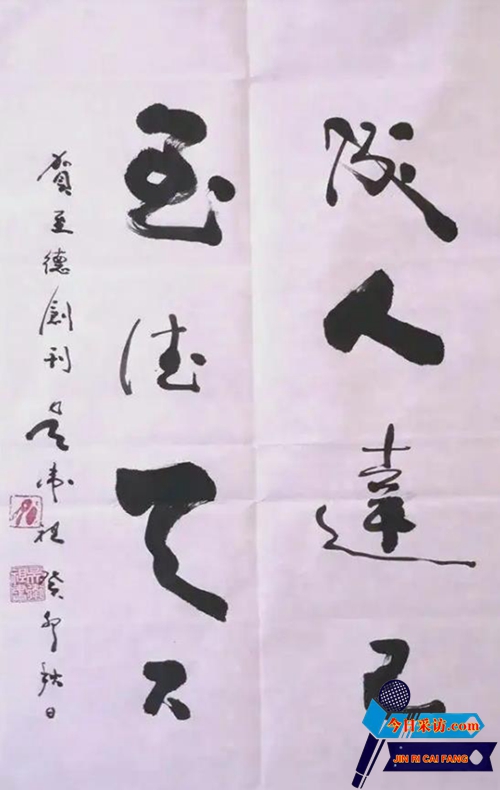 成人達己
至德天下
賀至德創刊
癸卯秋日
今日采访.com
JIN RI CAI FANG